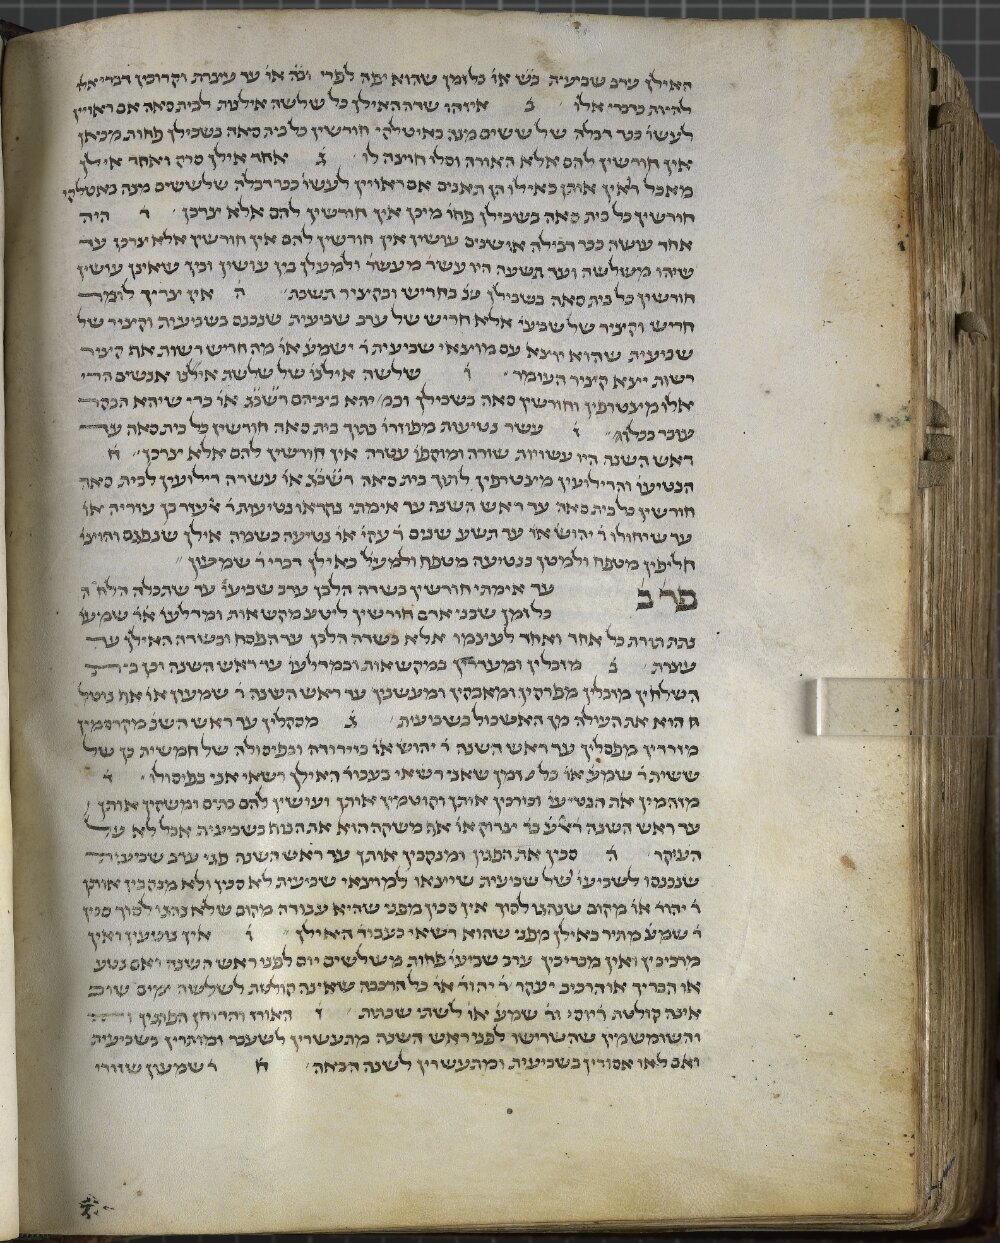 האילן ערב שביעית בש או כל זמן שהוא יפה לפרי ובה או עד עצרת וקרובין דברי אלו
להיות כדברי אלו ב איזהו שדה האילן כל שלשה אילנות לבית סאה אם ראויין
לעשו ככר דבלה של ששים מנה באיטלקי חורשין כל בית סאה בשבילן פחות מכאן
אין חורשין להם אלא האורה וסלו חוצה לו ג אחד אילן סרק ואחד אילן
מאכל רואין אותן כאילו הן תאנים אם ראויין לעשו ככר דבלה שלששים מנה באטלקי
חורשין כל בית סאה בשבילן פחו מיכן אין חורשין להם אלא צרכן ד היה
אחד עושה ככר דבילה או שנים עושין אין חורשין להם אין חורשין אלא צרכן עד
שיהו משלשה ועד תשעה היו עשר מעשר ולמעלן בין עושין ובין שאינן עושין
חורשין כל בית סאה בשבילן שנ בחריש ובקציר תשבת ה אין צריך לומר
חריש וקציר של שביעי אלא חריש של ערב שביעית שנכנס בשביעית וקציר של
שביעית שהוא יוצא עם מוצאי שביעית ר ישמע או מה חריש רשות אף קציר
רשות יצא קציר העומר ו שלשה אילנו של שלשת אילנו אנשים הרי
אלו מצטרפין וחורשין סאה בשבילן וכמ יהא ביניהם רשבג או כדי שיהא הבקר
עובר בכלוג ז עשר נטיעות מפוזרו בתוך בית סאה חורשין כל בית סאה עד
ראש השנה היו עשויות שורה ומוקפו עטרה אין חורשין להם אלא צרכן ח
הנטיעו והדילועין מצטרפין לתוך בית סאה רשבג או עשרה דילועין לבית סאה
חורשין כל בית סאה עד ראש השנה עד אימתי נקראו נטיעות ר אלעזר בן עזריה או
עד שיחולו ר יהוש או עד תשע שנים ר עקי או נטיעה כשמה אילן שנפגם והוצי
חליפין מטפח ולמטן כנטיעה מטפח ולמעל כאילן דברי ר שמעון
פר ב עד אימתי חורשין בשדה הלבן ערב שביעי עד שתכלה הלחה
כל זמן שבני אדם חורשין ליטע מקשאות ומדלעו או שמעו
נתת תורת כל אחד ואחד לעצמו אלא בשדה הלבן עד הפסח ובשדה האילן עד
עצרת ב מזבלין ומעדרין במקשאות ובמדלעו עד ראש השנה וכן ב
השלחין מיבלין מפרקין ומאבקין ומעשנין עד ראש השנה ר שמעון או אף נוטל
הוא את העולה מן האשכול בשביעית ג מסקלין עד ראש השנ מקרסמין
מזרדין מפסלין עד ראש השנה ר יהוש או כזירודה וכפיסולה של חמשית כן של
ששית ר שמע או כל זמן שאני רשאי בעבוד האילן רשאי אני בפיסולו ד
מזהמין את הנטיעו וכורכין אותן וקוטמין אותן ועושין להם בתים ומשקין אותן
עד ראש השנה ראלע בר צדוק או אף משקה הוא את הנוף בשביעית אבל לא על
העיקר ה סכין את הפגין ומנקבין אותן עד ראש השנה פגי ערב שביעית
שנכנסו לשביעי ושל שביעית שייצאו למוצאי שביעית לא סכין ולא מנקבין אותן
ר יהוד או מקום שנהגו לסוך אין סכין מפני שהיא עבודה מקום שלא נהגו לסוך סכין
ר שמע מתיר באילן מפני שהוא רשאי בעבוד האילן ו אין נוטעין ואין
מרכיבין ואין מבריכין ערב שביעי פחות משלשים יום לפני ראש השנה ואם נטע
או הבריך או הרכיב יעקר ר יהוד או כל הרכבה שאינה קולטת לשלשה ימים שוב
אינה קולטת ר יוסי ור שמע או לשתי שבתות ז האורז והדוחן הפרגין
והשומשמין שהשרישו לפני ראש השנה מתעשרין לשעבר ומותרין בשביעית
ואם לאו אסורין בשביעית ומתעשרין לשנה הבאה ח ר שמעון שזורי